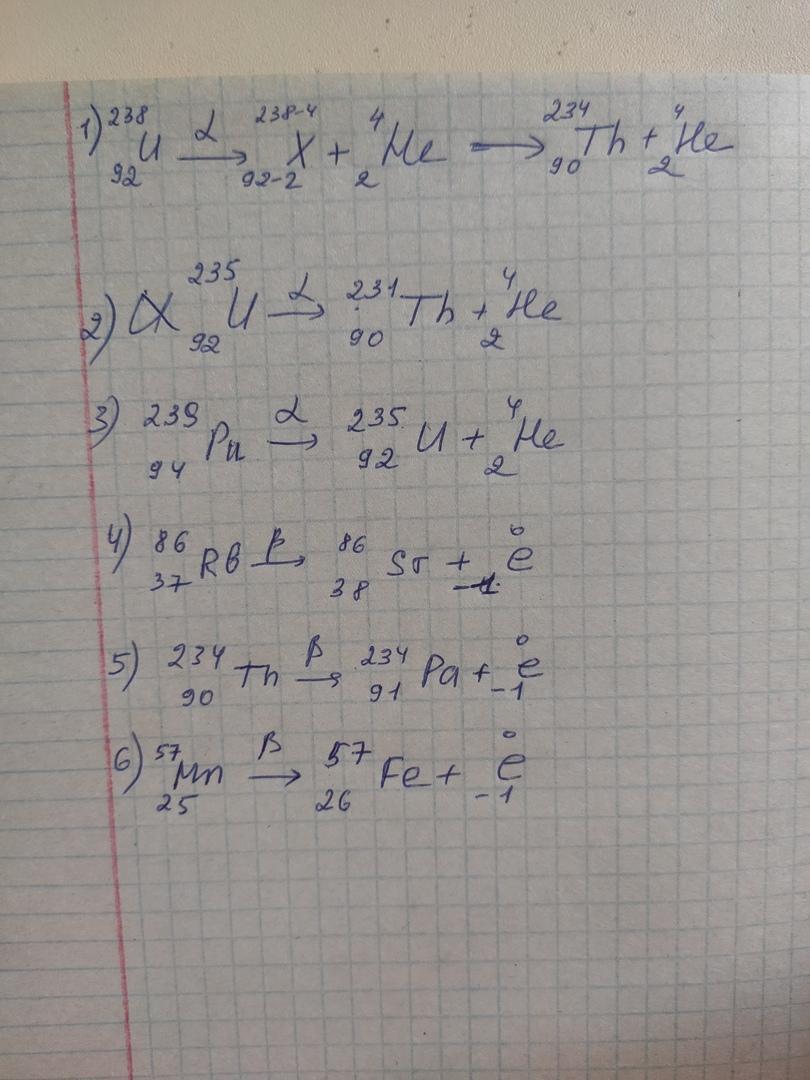 1) ²³⁸₉₂U —α→ ²³⁸⁻⁴₉₂₋₂X + ⁴₂He → ²³⁴₉₀Th + ⁴₂He
2) ²³⁵₉₂U —α→ ²³¹₉₀Th + ⁴₂He
3) ²³⁹₉₄Pu —α→ ²³⁵₉₂U + ⁴₂He
4) ⁸⁶₃₇Rb —β→ ⁸⁶₃₈Sr + ⁰₋₁e
5) ²³⁴₉₀Th —β→ ²³⁴₉₁Pa + ⁰₋₁e
6) ⁵⁷₂₅Mn —β→ ⁵⁷₂₆Fe + ⁰₋₁e